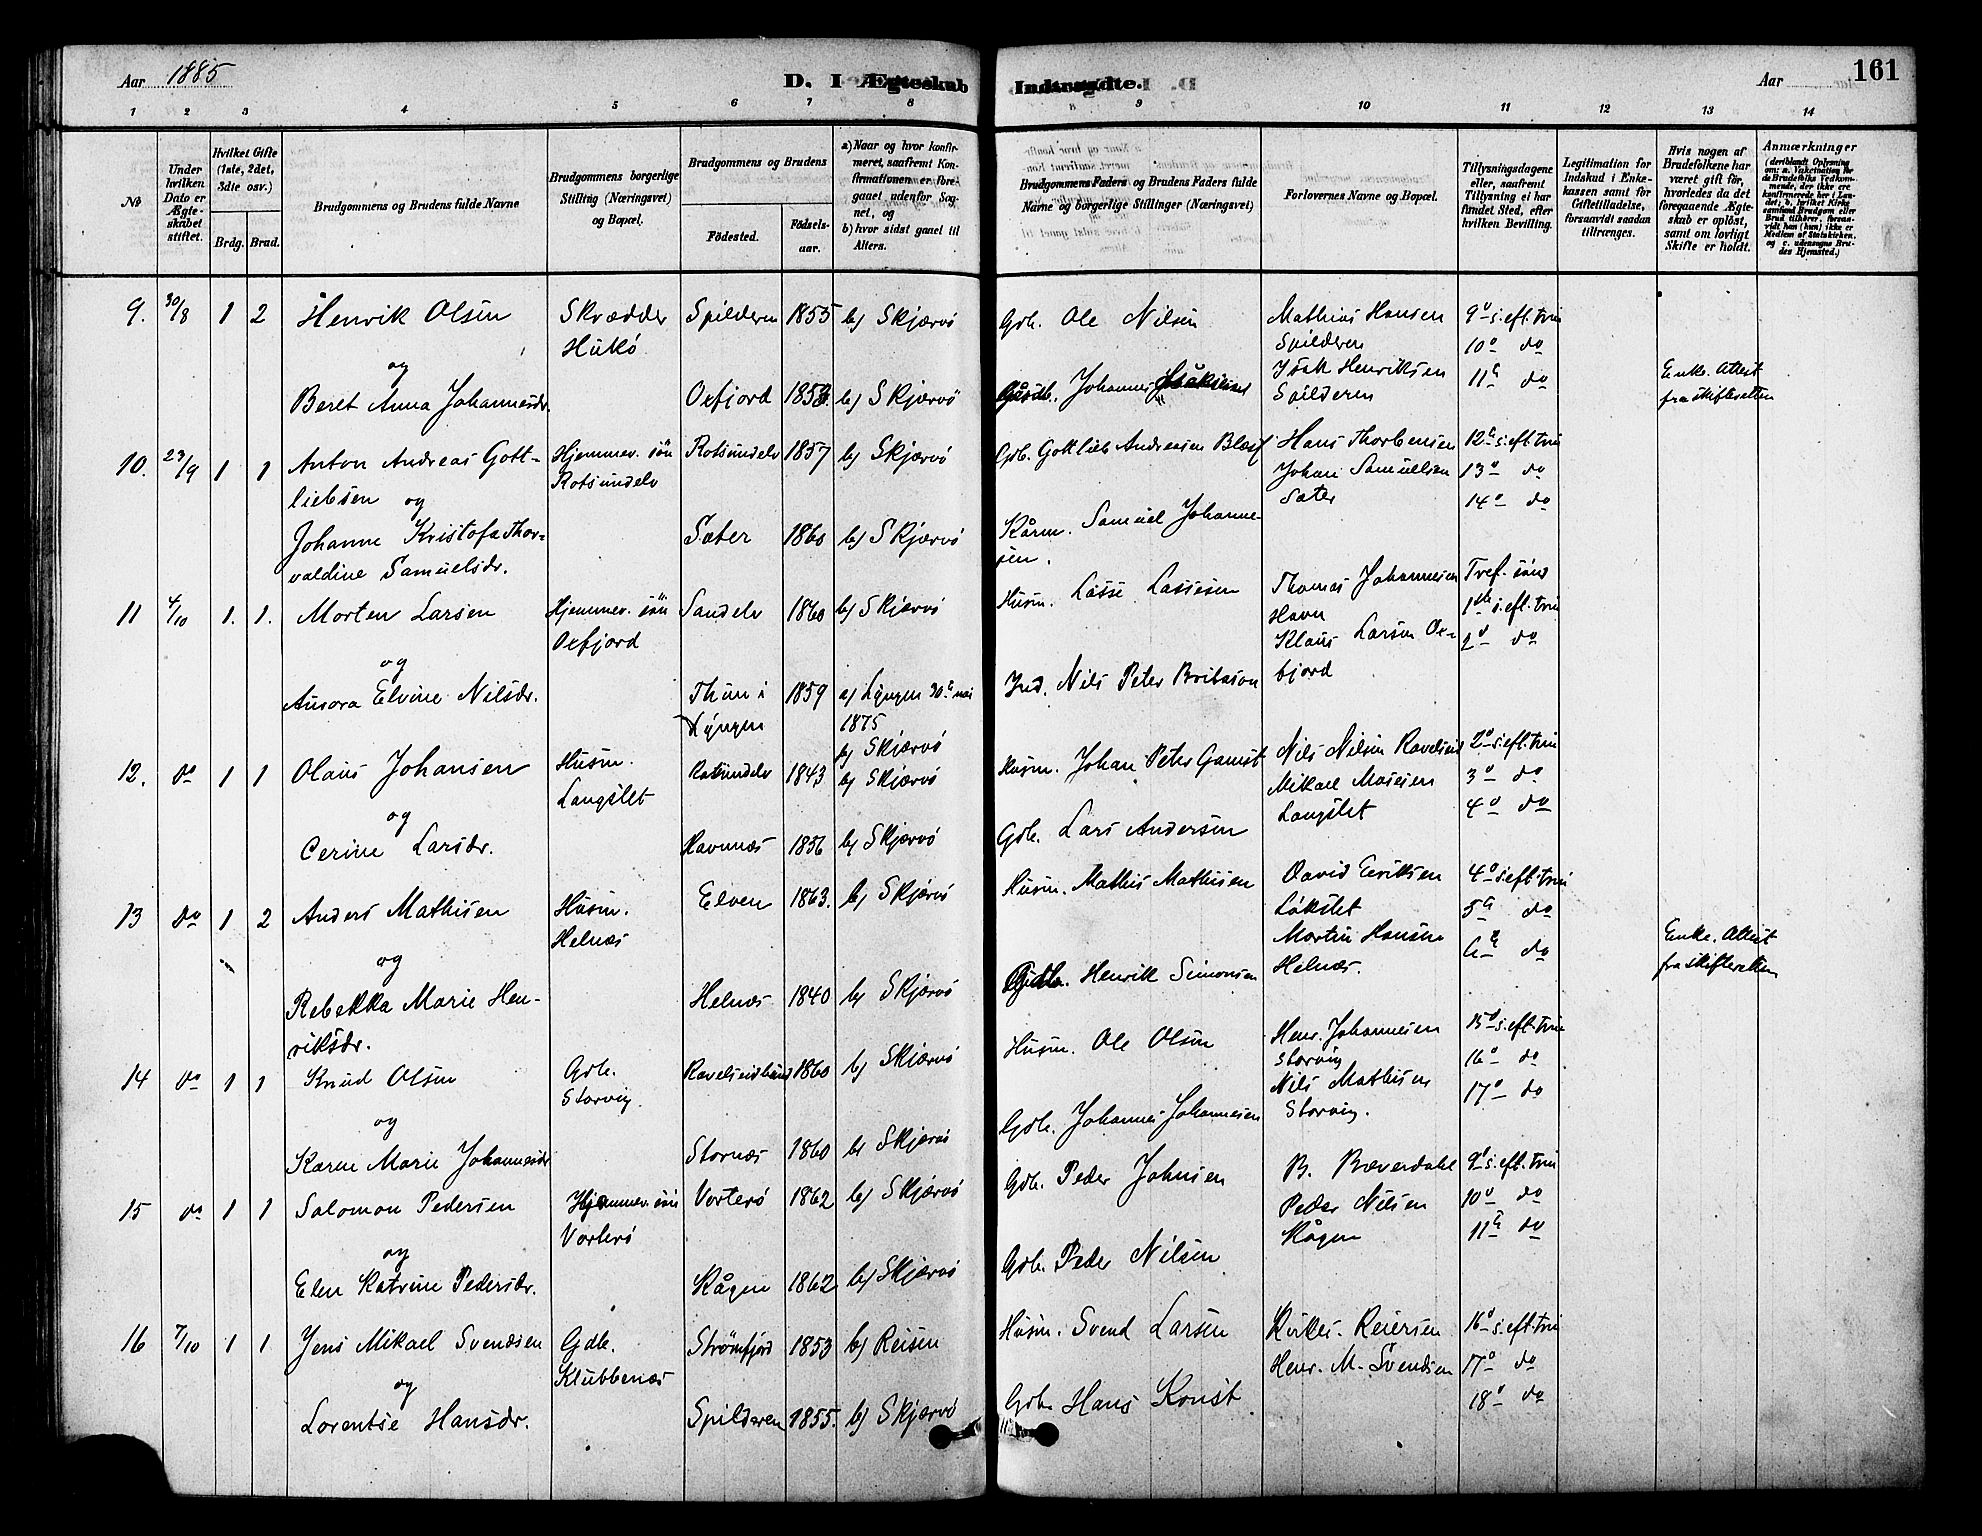 Aar 1885
D. I Ægteskab Indtraadte.
Aar
161
1 2 3 4 5 6 7 8 9 10 11 12 13 14
No
Under hvilken Dato er Ægteskabet stiftet.
Hvilket Gifte (1ste, 2det, 3die osv.)
Brdg. Brud.
Brudgommens og Brudens fulde Navne
Brudgommens borgerlige Stilling (Næringsvei) og Bopæl.
Brudgommens og Brudens
Fødested. Fødselsaar.
a) Naar og hvor konfirmeret, saafremt Konfirmationen er foregaaet udenfor Sognet, og
b) hvor sidst gaaet til Alters.
Brudgommens Faders og Brudens Faders fulde Navne og borgerlige Stillinger (Næringsvei)
Forlovernes Navne og Bopæl.
Tillysningsdagene eller, saafremt Tillysning ei har fundet Sted, efter hvilken Bevilling.
Legitimation for Indskud i Enkekassen samt for Giftetilladelse, forsaavidt saadan tiltrænges.
Hvis nogen af Brudefolkene har været gift før, hvorledes da det foregaaende Ægteskab er opløst, samt om lovligt Skifte er holdt.
Anmærkninger
9. 30/8 1 2 Henrik Olsen Skrædder Spilderen 1855 b) Skjærvö Gdb. Ole Nilsen Mathias Hansen 9de s. eft. trin
Hukö Spilderen 10de do
og Isak Henriksen 11te do Enke. Attest
Beret Anna Johannesdr. Oxfjord 1853. b) Skjærvö Gdb. Johannes Isaksen Spilderen fra skifteretten
10. 23/9 1 1 Anton Andreas Gott- Hjemmev. sön Rotsundelv 1857 b) Skjærvö Gdb. Gottlieb Andreasen Hans Thorbensen 12te s. eft. trin
liebsen og Rotsundelv Johan Samuelsen 13de do
Johanne Kristofa Thor- Sater 1860 b) Skjærvö Kårm. Samuel Johanne- Sater 14de do
valdine Samuelsdr. sen.
11 4/10 1. 1. Morten Larsen Hjemmev. sön Sandelv 1860 b) Skjærvö Husm. Lasse Lassesen Thomas Johannesen Tref. sönd
Oxfjord Havn 1ste s. eft. trin
og Klaus Larsen Ox- 2den do
Aurora Elvine Nilsdr. i 1859 a) Lyngen 30te mai Ind. Nils Peter fjord
Lyngen 1875
b) Skjærvö
12. do 1 1 Olaus Johansen Husm. Rotsundelv 1843 b) Skjærvö Husm. Johan Peter Gamst Nils Nilsen Ravelseid 2den s. eft. trin
Langslet Mikael Mosesen 3de do
og Langslet 4de do
Cerine Larsdr. Ravnnæs 1856 b) Skjærvö Gdb. Lars Andersen
13 do 1 2 Anders Mathisen Husm. Elven 1863. b) Skjærvö Husm. Mathis Mathisen David Eriksen 4de s. eft. trin
Helnæs Lökslet 5te do
og Martin Hansen 6te do Enke. Attest
Rebekka Marie Hen- Helnæs 1840 b) Skjærvö Gdb. Henrik Simonsen Helnæs. fra skifteretten
riksdr.
14 do 1 1 Knud Olsen Gdb. Ravelseidbund 1860 b) Skjærvö Husm. Ole Olsen Henr. Johannesen 15de s. eft. trin
Storvig. Storvig 16de do
og Nils Mathisen 17de do
Karen Marie Johannesdr. Stornæs 1860 b) Skjærvö Gdb. Johannes Johannesen Storvig.
15 do 1 1 Salomon Pedersen Hjemmev. sön Vorterö 1862 b) Skjærvö Gdb. Peder Johnsen B. Bæverdahl 9de s. eft. trin
Vorterö Peder Nilsen 10de do
og Kågen 11te do
Elen Katrine Pedersdr. Kågen 1862 b) Skjærvö Gdb. Peder Nilsen
16 7/10 1 1 Jens Mikael Svendsen Gdb. Strömfjord 1853 b) Reisen Husm. Svend Larsen Reiersen 16de s. eft. trin
Klubbenæs Henr. M. Svendsen 17de do
og 18de do
Lorentse Hansdr. Spilderen 1855. b) Skjærvö Gdb. Hans Konst